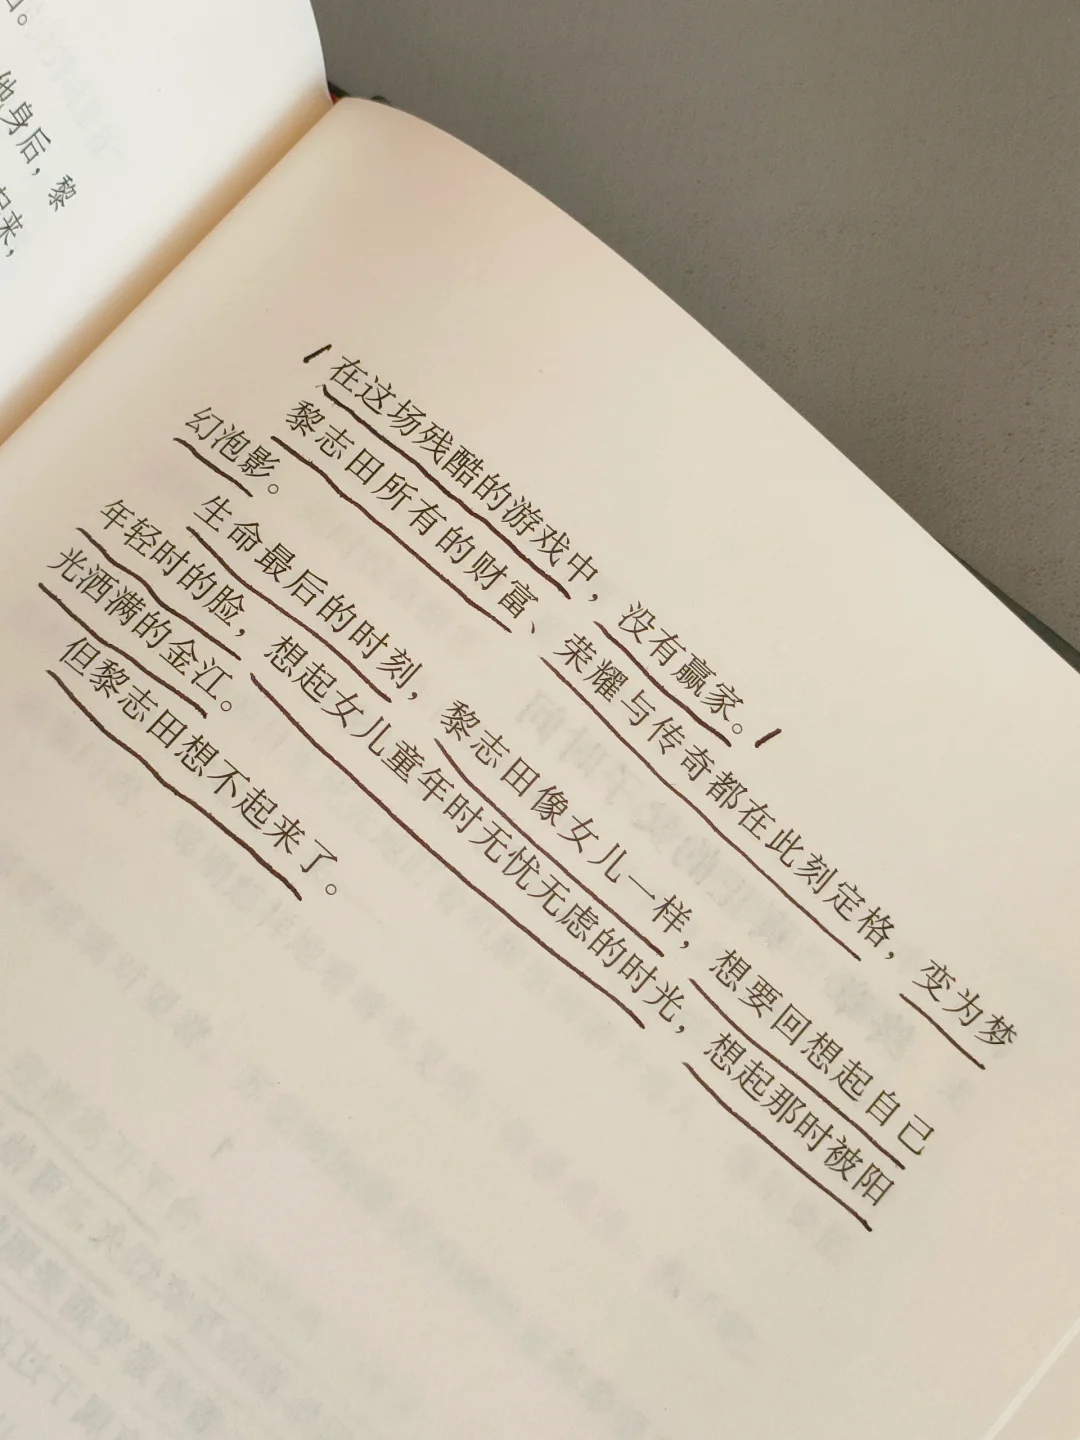 他身后，黎
起来，
在这场残酷的游戏中，没有赢家。
黎志田所有的财富、荣耀与传奇都在此刻定格，变为梦
幻泡影。
生命最后的时刻，黎志田像女儿一样，想要回想起自己
年轻时的脸，想起女儿童年时无忧无虑的时光，想起那时被阳
光洒满的金江。
但黎志田想不起来了。